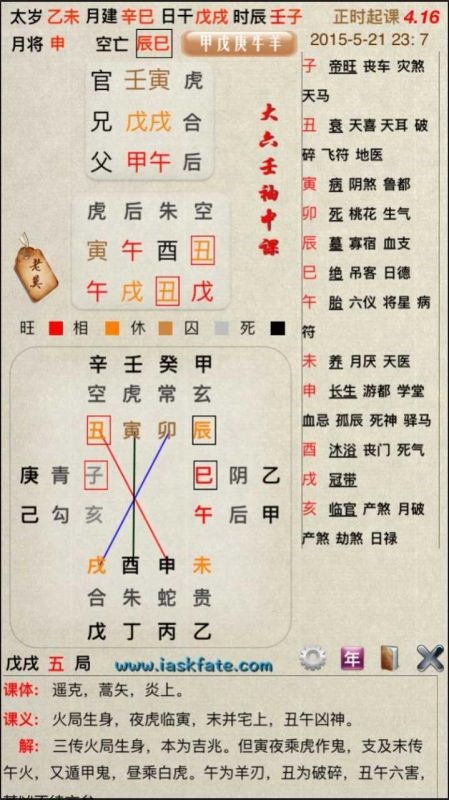 太岁 乙未 月建 辛巳 日干 戊戌 时辰 壬子 正时起课 4.16
月将 申 空亡 辰巳 甲戊庚牛羊 2015-5-21 23: 7
官 壬寅 虎
兄 戊戌 合
父 甲午 后
大六壬袖中课
虎 后 朱 空
寅 午 酉 丑
午 戌 丑 戊
旺 相 休 囚 死
辛 壬 癸 甲
空 虎 常 玄
丑 寅 卯 辰
庚 青 子 巳 阴 乙
己 勾 亥 午 后 甲
戌 酉 申 未
合 朱 蛇 贵
戊 丁 丙 乙
子 帝旺 丧车 灾煞
天马
丑 衰 天喜 天耳 破
碎 飞符 地医
寅 病 阴煞 鲁都
卯 死 桃花 生气
辰 墓 寡宿 血支
巳 绝 吊客 日德
午 胎 六仪 将星 病
符
未 养 月厌 天医
申 长生 游都 学堂
血忌 孤辰 死神 驿马
酉 沐浴 丧门 死气
戌 冠带
亥 临官 产煞 月破
产煞 劫煞 日禄
戊戌 五 局 www.iaskfate.com 年
课体： 遥克，蒿矢，炎上。
课义： 火局生身，夜虎临寅，末并宅上，丑午凶神。
解： 三传火局生身，本为吉兆。但寅夜乘虎作鬼，支及末传
午火，又遁甲鬼，昼乘白虎。午为羊刃，丑为破碎，丑午六害，